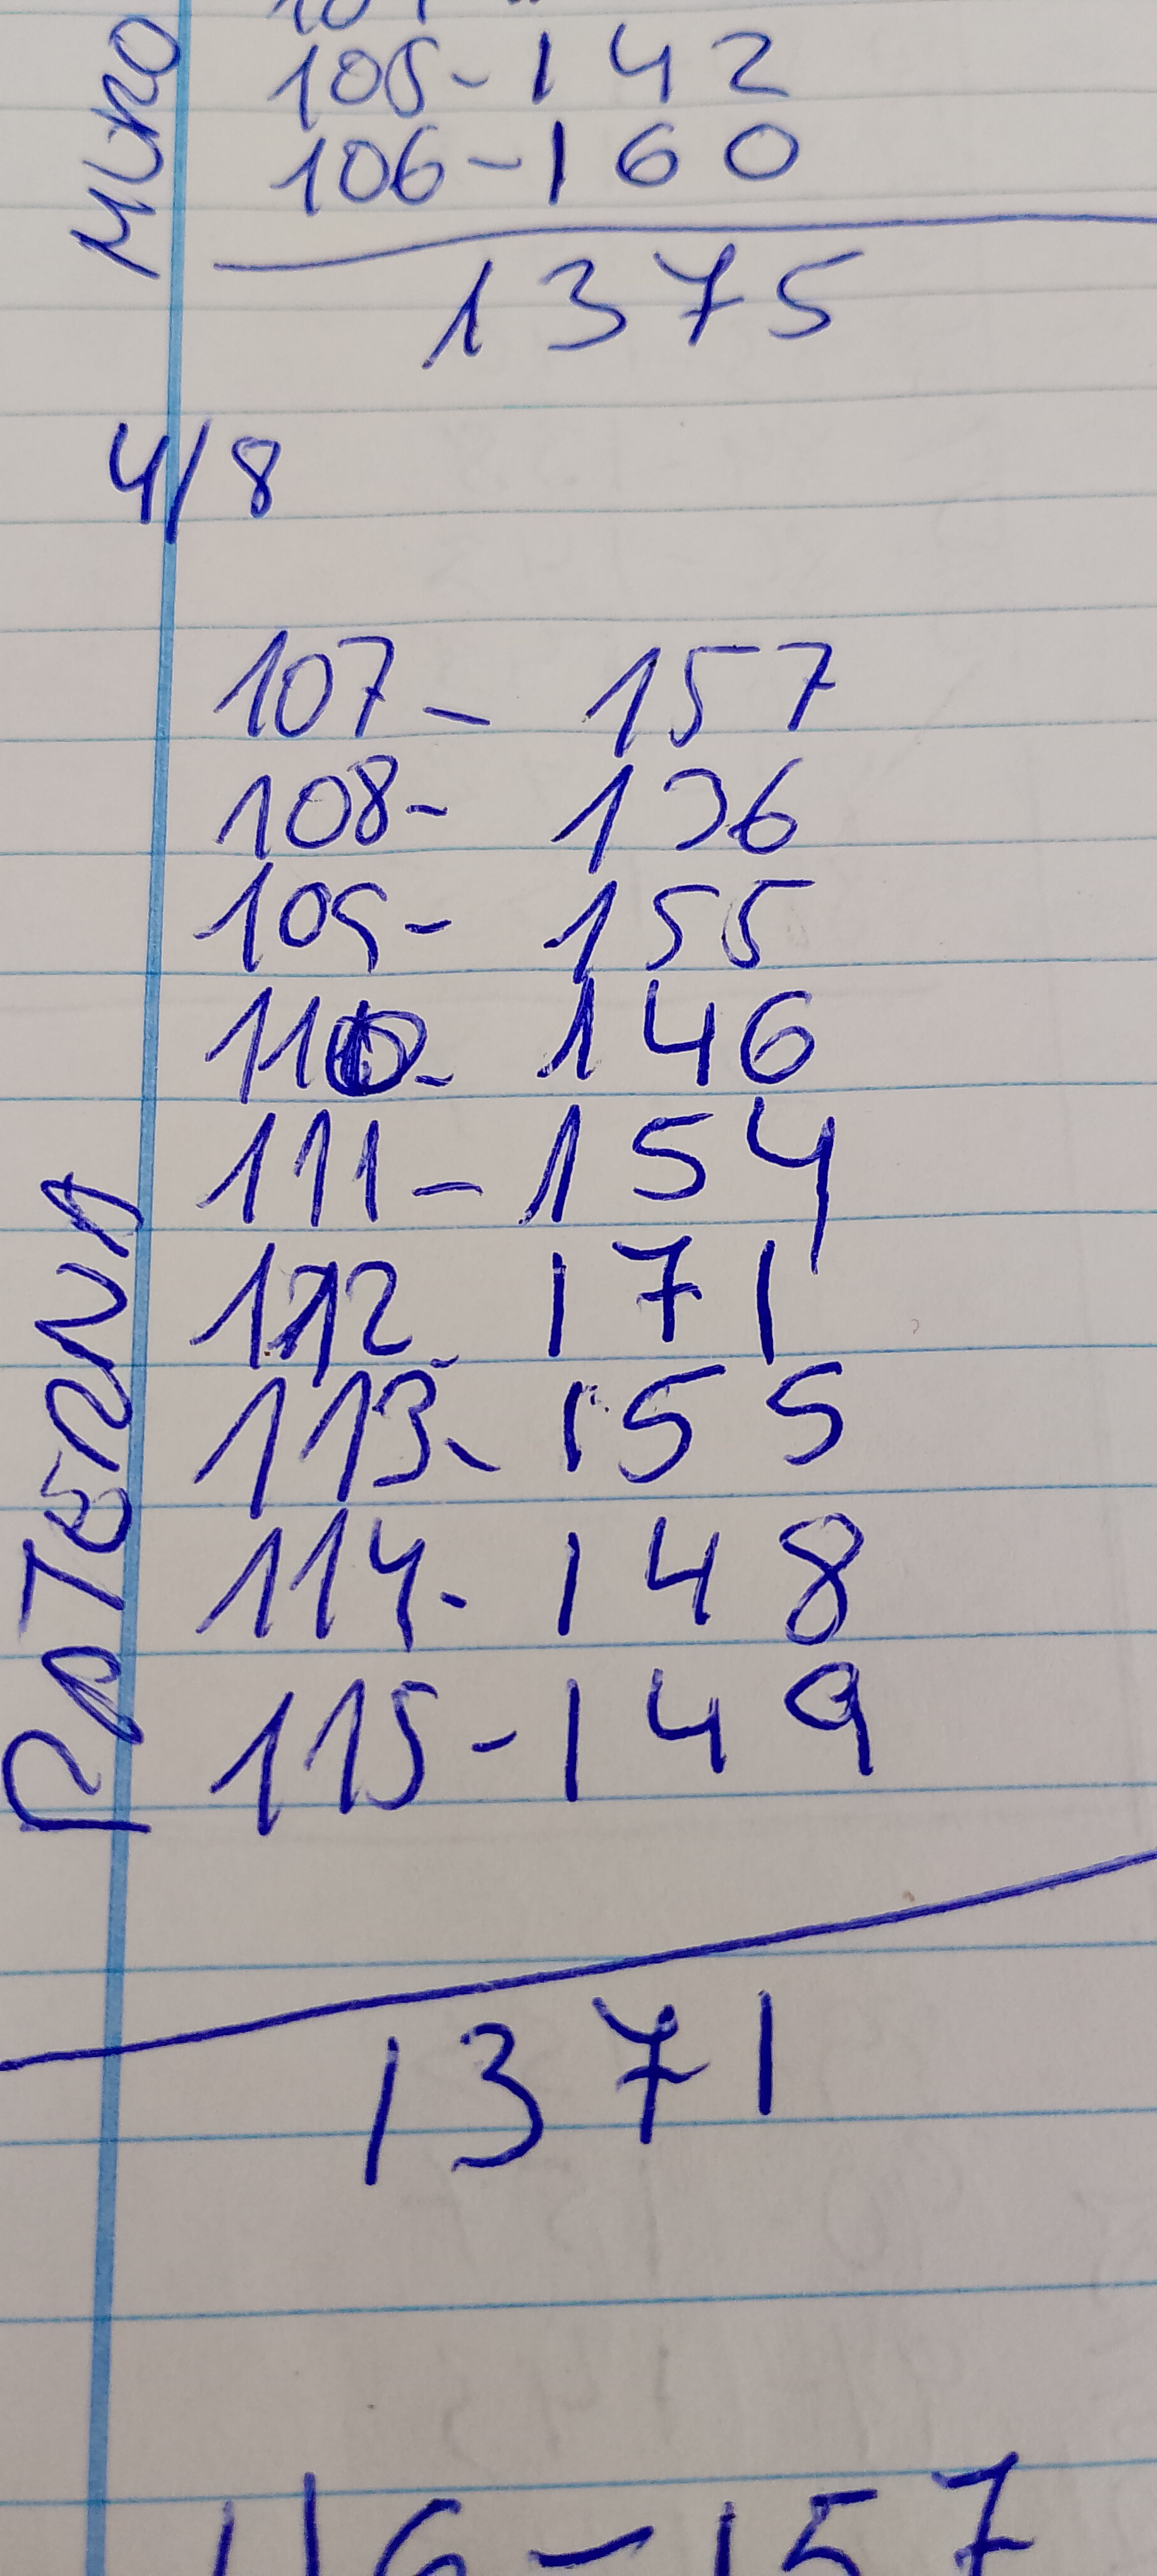 105-142
106-160
MURO
1375
4/8
107- 157
108- 136
109- 155
110- 146
111- 154
112- 171
113- 155
114- 148
115- 149
PATERNA
1371
116-157